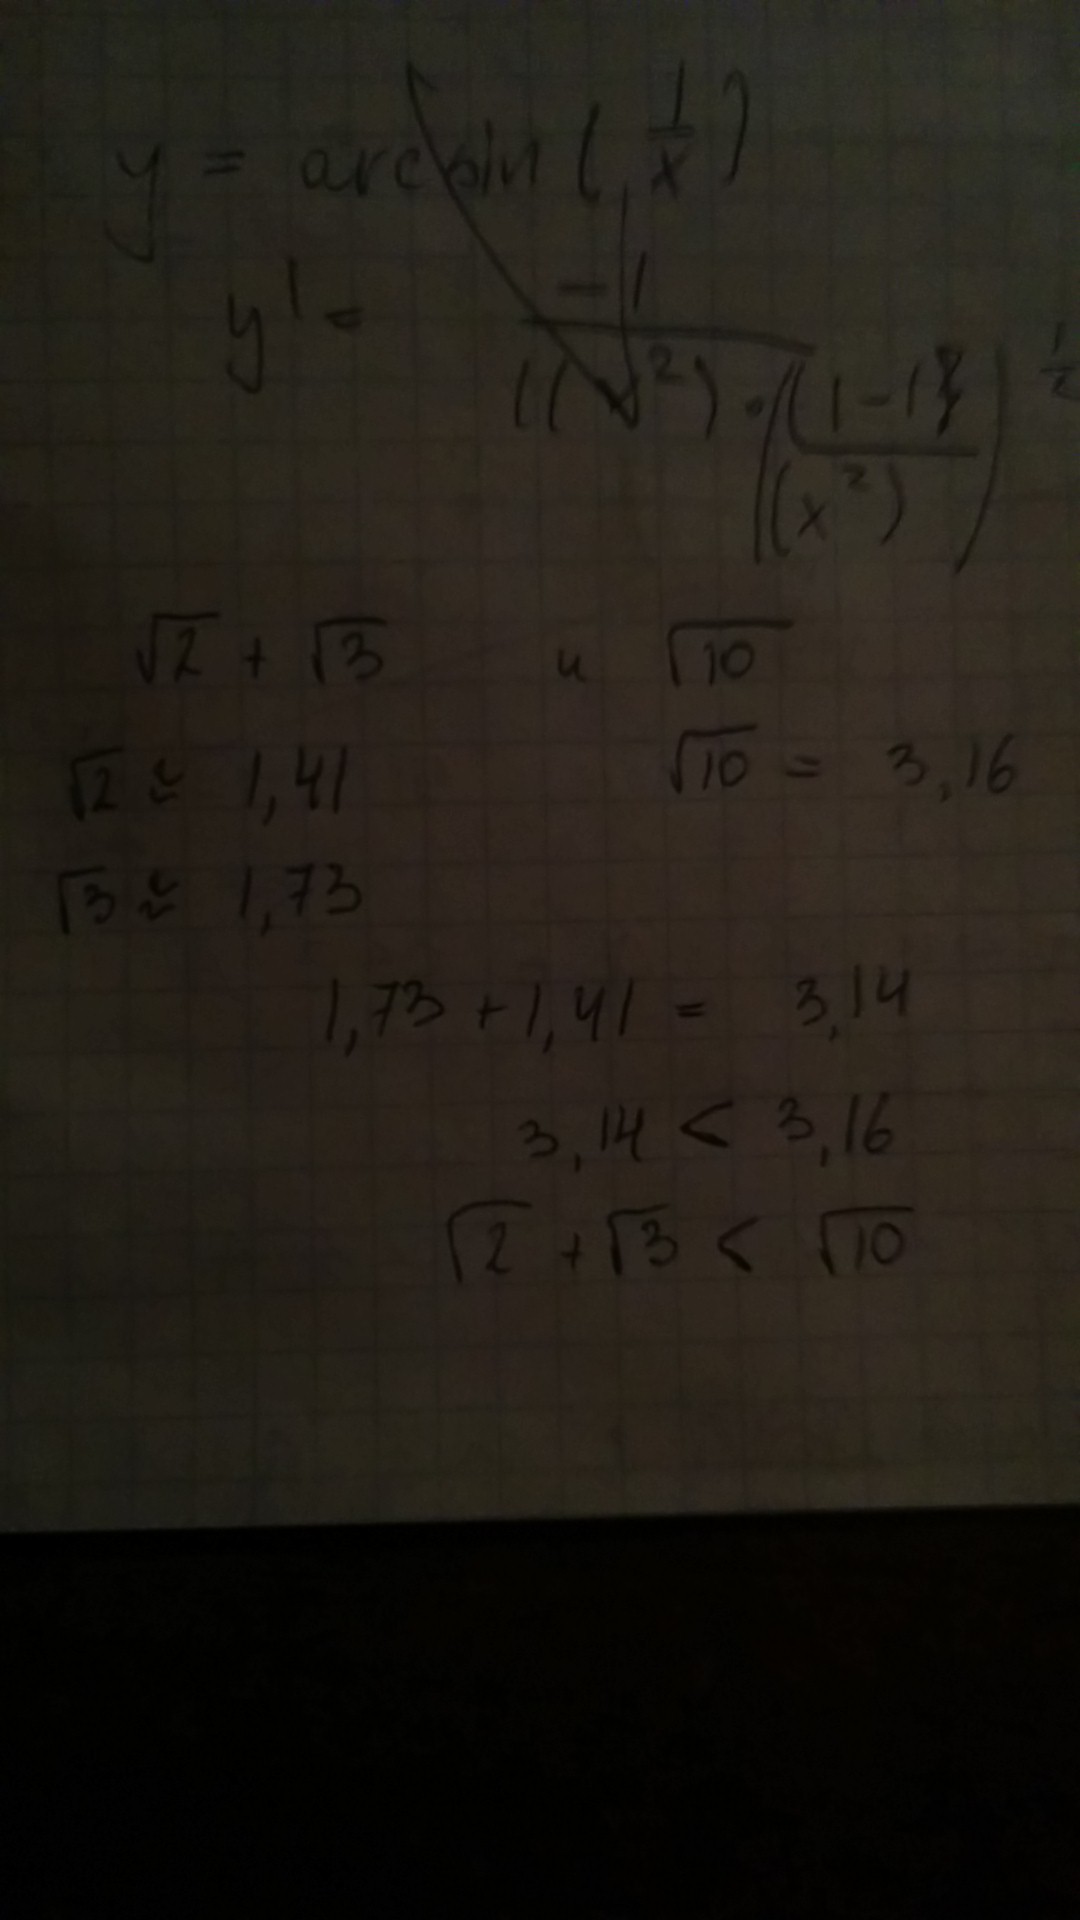 y = arcsin(1/x)
y' = -1/((x²)·((1-1)/(x²))^1/2
√2 + √3 и √10
√2 ≈ 1,41 √10 = 3,16
√3 ≈ 1,73
1,73 + 1,41 = 3,14
3,14 < 3,16
√2 + √3 < √10